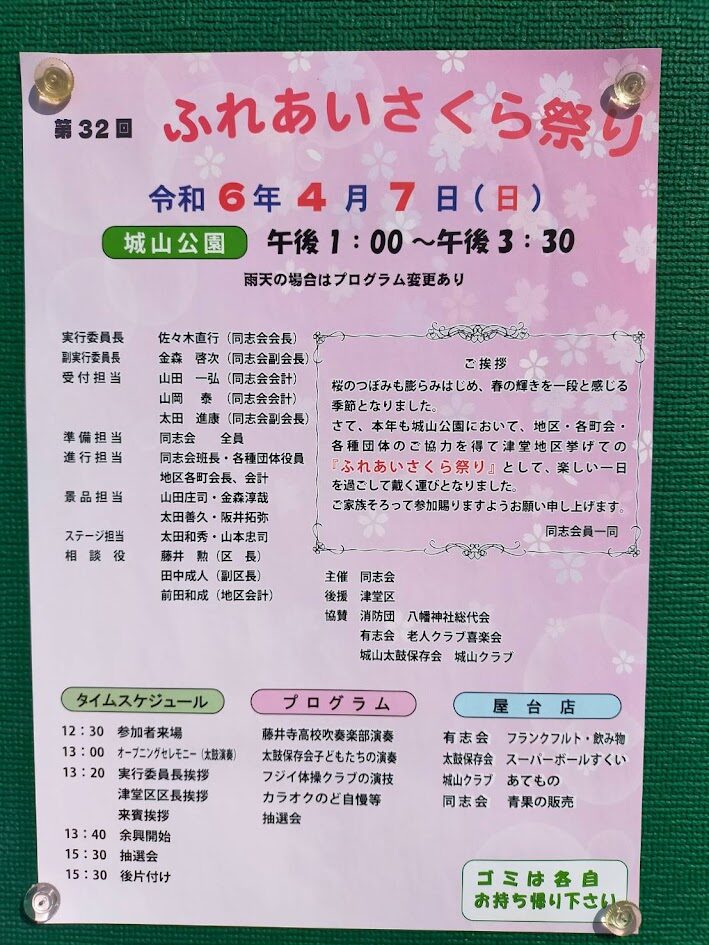 第32回 ふれあいさくら祭り
令和6年4月7日(日)
城山公園 午後1:00～午後3:30
雨天の場合はプログラム変更あり
実行委員長 佐々木直行(同志会会長)
副実行委員長 金森 啓次(同志会副会長)
受付担当 山田 一弘(同志会会計)
山岡 泰(同志会会計)
太田 進康(同志会副会長)
準備担当 同志会 全員
進行担当 同志会班長・各種団体役員
地区各町会長、会計
景品担当 山田庄司・金森淳哉
太田善久・阪井拓弥
ステージ担当 太田和秀・山本忠司
相談役 藤井 勲(区 長)
田中成人(副区長)
前田和成(地区会計)
ご挨拶
桜のつぼみも膨らみはじめ、春の輝きを一段と感じる
季節となりました。
さて、本年も城山公園において、地区・各町会・
各種団体のご協力を得て津堂地区挙げての
『ふれあいさくら祭り』として、楽しい一日
を過ごして戴く運びとなりました。
ご家族そろって参加賜りますようお願い申し上げます。
同志会員一同
主催 同志会
後援 津堂区
協賛 消防団 八幡神社総代会
有志会 老人クラブ喜楽会
城山太鼓保存会 城山クラブ
タイムスケジュール
12:30 参加者来場
13:00 オープニングセレモニー(太鼓演奏)
13:20 実行委員長挨拶
津堂区区長挨拶
来賓挨拶
13:40 余興開始
15:30 抽選会
15:30 後片付け
プログラム
藤井寺高校吹奏楽部演奏
太鼓保存会子どもたちの演奏
フジイ体操クラブの演技
カラオケのど自慢等
抽選会
屋台店
有志会 フランクフルト・飲み物
太鼓保存会 スーパーボールすくい
城山クラブ あてもの
同志会 青果の販売
ゴミは各自
お持ち帰り下さい